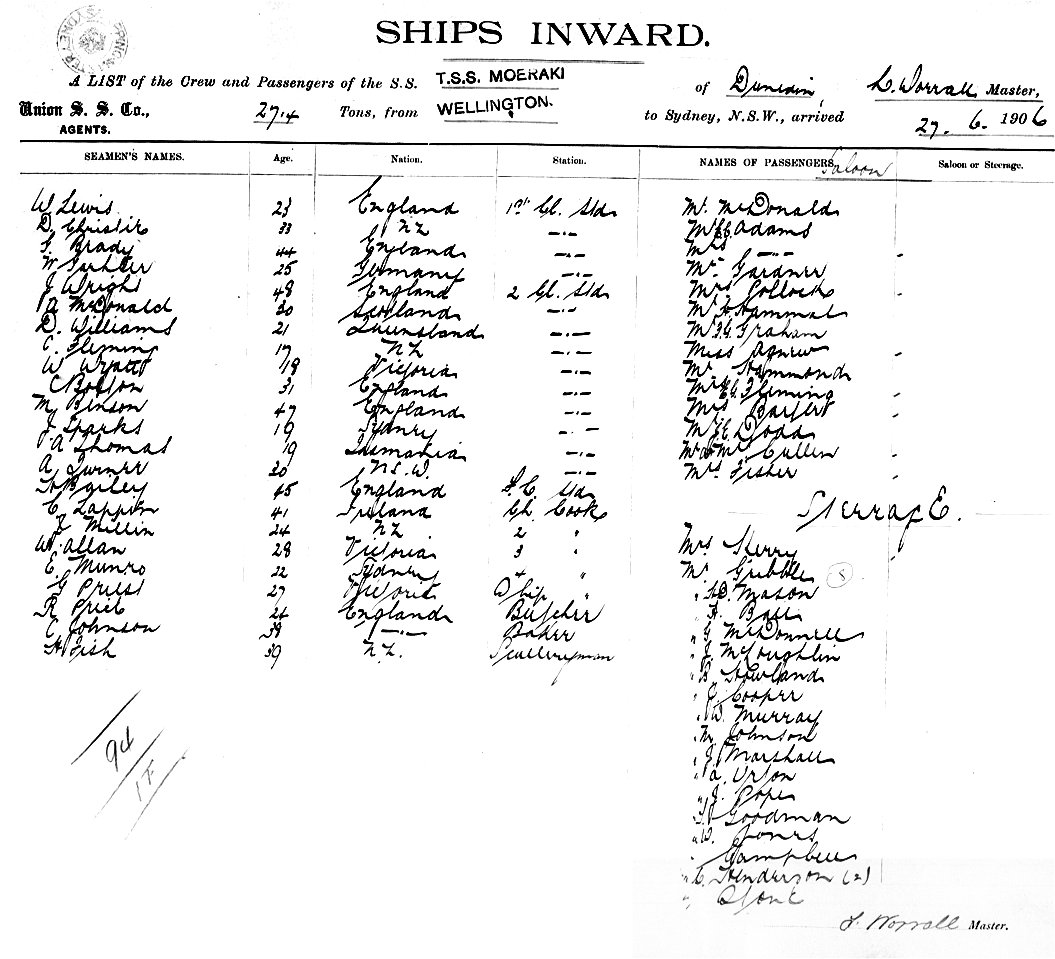 SHIPS INWARD.
A LIST of the Crew and Passengers of the S.S. T.S.S. MOERAKI of Dunedin, Worrall Master,
Union S. S. Co., AGENTS. Tons, from WELLINGTON. to Sydney, N.S.W., arrived 27. 6. 1906
SEAMEN'S NAMES. Age. Nation. Station. NAMES OF PASSENGERS Saloon Saloon or Steerage.
W Lewis 23 England 1st Cl. Std. Mr. McDonald
D. Christie 33 NZ —.— Adams
Brady 44 England —.— Mrs —.—
W 25 Germany —.— Mr Gardner
J Wright 48 England 2 Cl. Std. Mrs Pollock
A McDonald 30 Scotland —.— Mr Hammal
D. Williams 21 Queensland —.— Graham
C. Fleming 17 NZ —.— Miss Agnew
W Wyatt 18 Victoria —.— Mr Hammond
C Bolton 31 England —.— Fleming
M Benson 47 England —.— Mrs
J Sparks 19 Sydney —.— Dodd
A Thomas 19 Tasmania —.— Mr & Mrs Cullen
A Turner 20 N.S.W. —.— Mrs Fisher
45 England Std.
C Lappin 41 Ireland Ch. Cook SteeragE.
Millin 24 NZ 2 "
W. Allan 28 Victoria 3 " Mrs Skerry
E Munro 22 Sydney 4 " Mr Gribble
G Priest 27 Victoria Ship " " Mason
R 24 England Butcher " Ball
C Johnson 38 —.— Baker " McDonnell
H Fish 39 N.Z. Sculleryman " J McLoughlin
" Howland
" J Cooper
" W. Murray
" Johnson
" J Marshall
94
" A.
18
" J. Pope
Goodman
" W. Jones
" Campbell
" C. Henderson (2)
" Stone
Worrall Master.